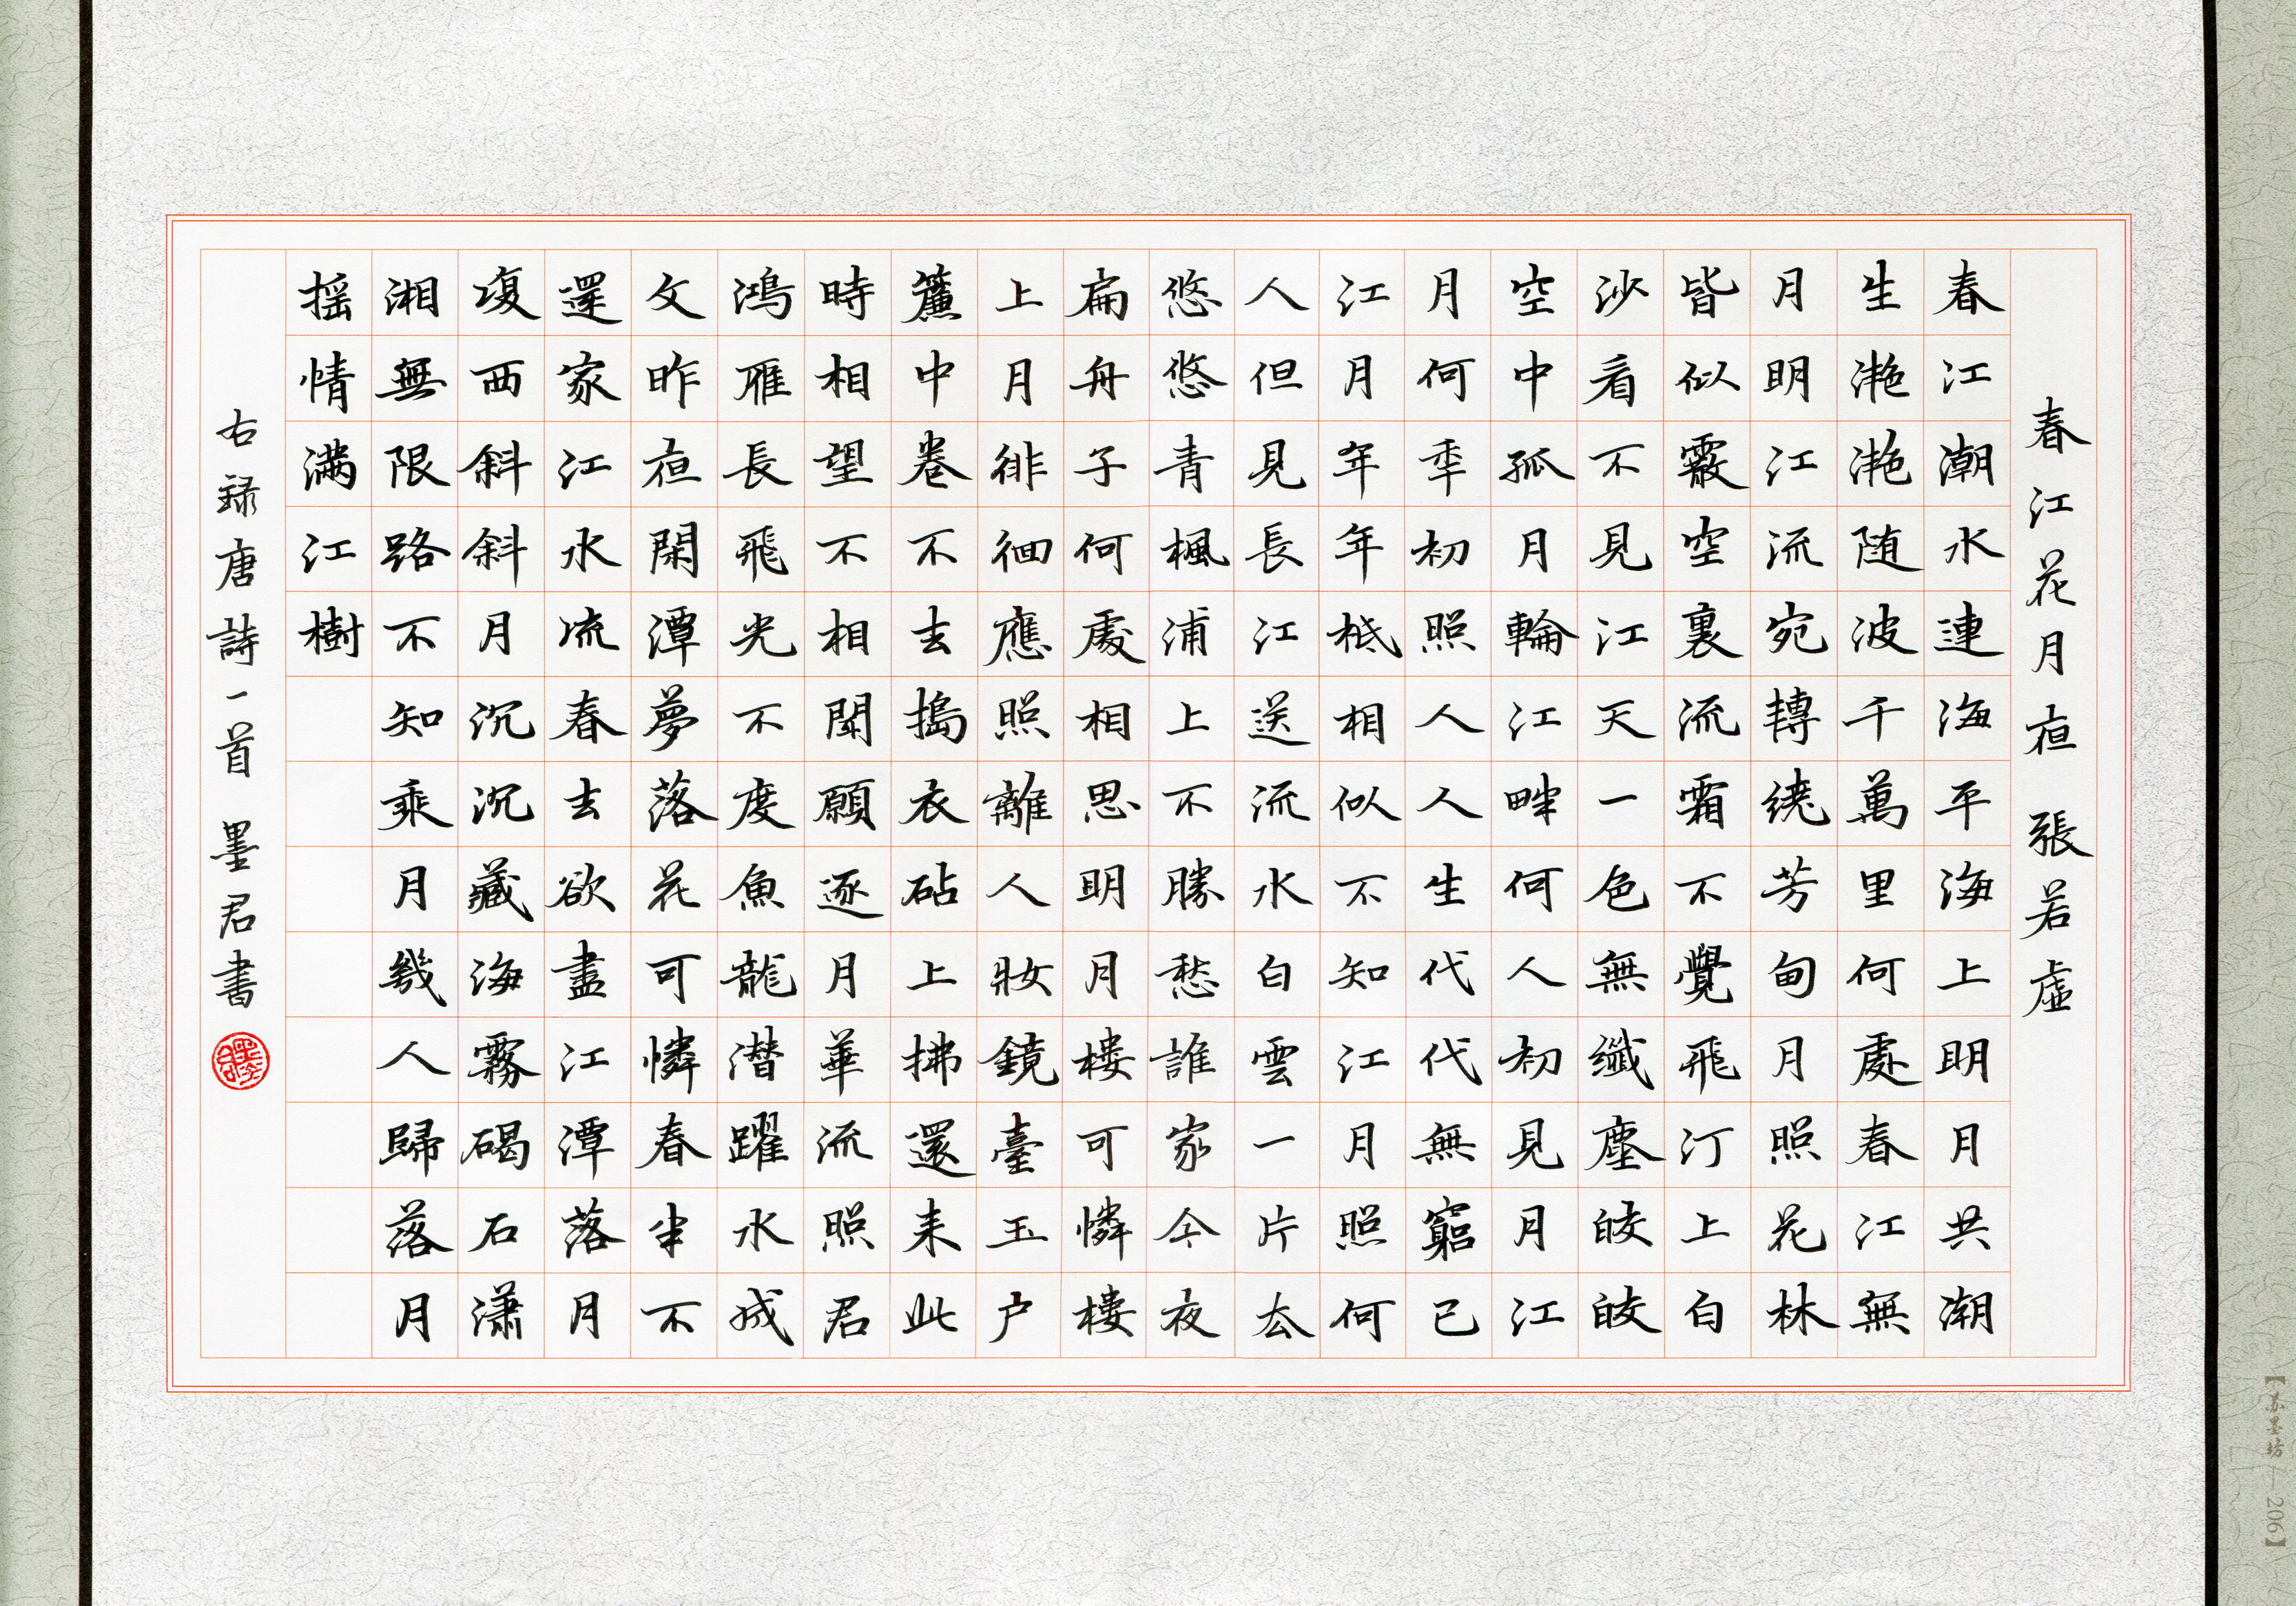 春江花月夜 張若虛
春江潮水連海平海上明月共潮
生滟滟随波千萬里何處春江無
月明江流宛轉繞芳甸月照花林
皆似霰空裏流霜不覺飛汀上白
沙看不見江天一色無纖塵皎皎
空中孤月輪江畔何人初見月江
月何年初照人人生代代無窮已
江月年年袛相似不知江月照何
人但見長江送流水白雲一片去
悠悠青楓浦上不勝愁誰家今夜
扁舟子何處相思明月樓可憐樓
上月徘徊應照離人妝鏡臺玉户
簾中卷不去搗衣砧上拂還来此
時相望不相聞願逐月華流照君
鴻雁長飛光不度魚龍潜躍水成
文昨夜閑潭夢落花可憐春半不
還家江水流春去欲盡江潭落月
復西斜斜月沉沉藏海霧碣石瀟
湘無限路不知乘月幾人歸落月
摇情滿江樹
右録唐詩一首 墨君書
【苏墨坊—206】